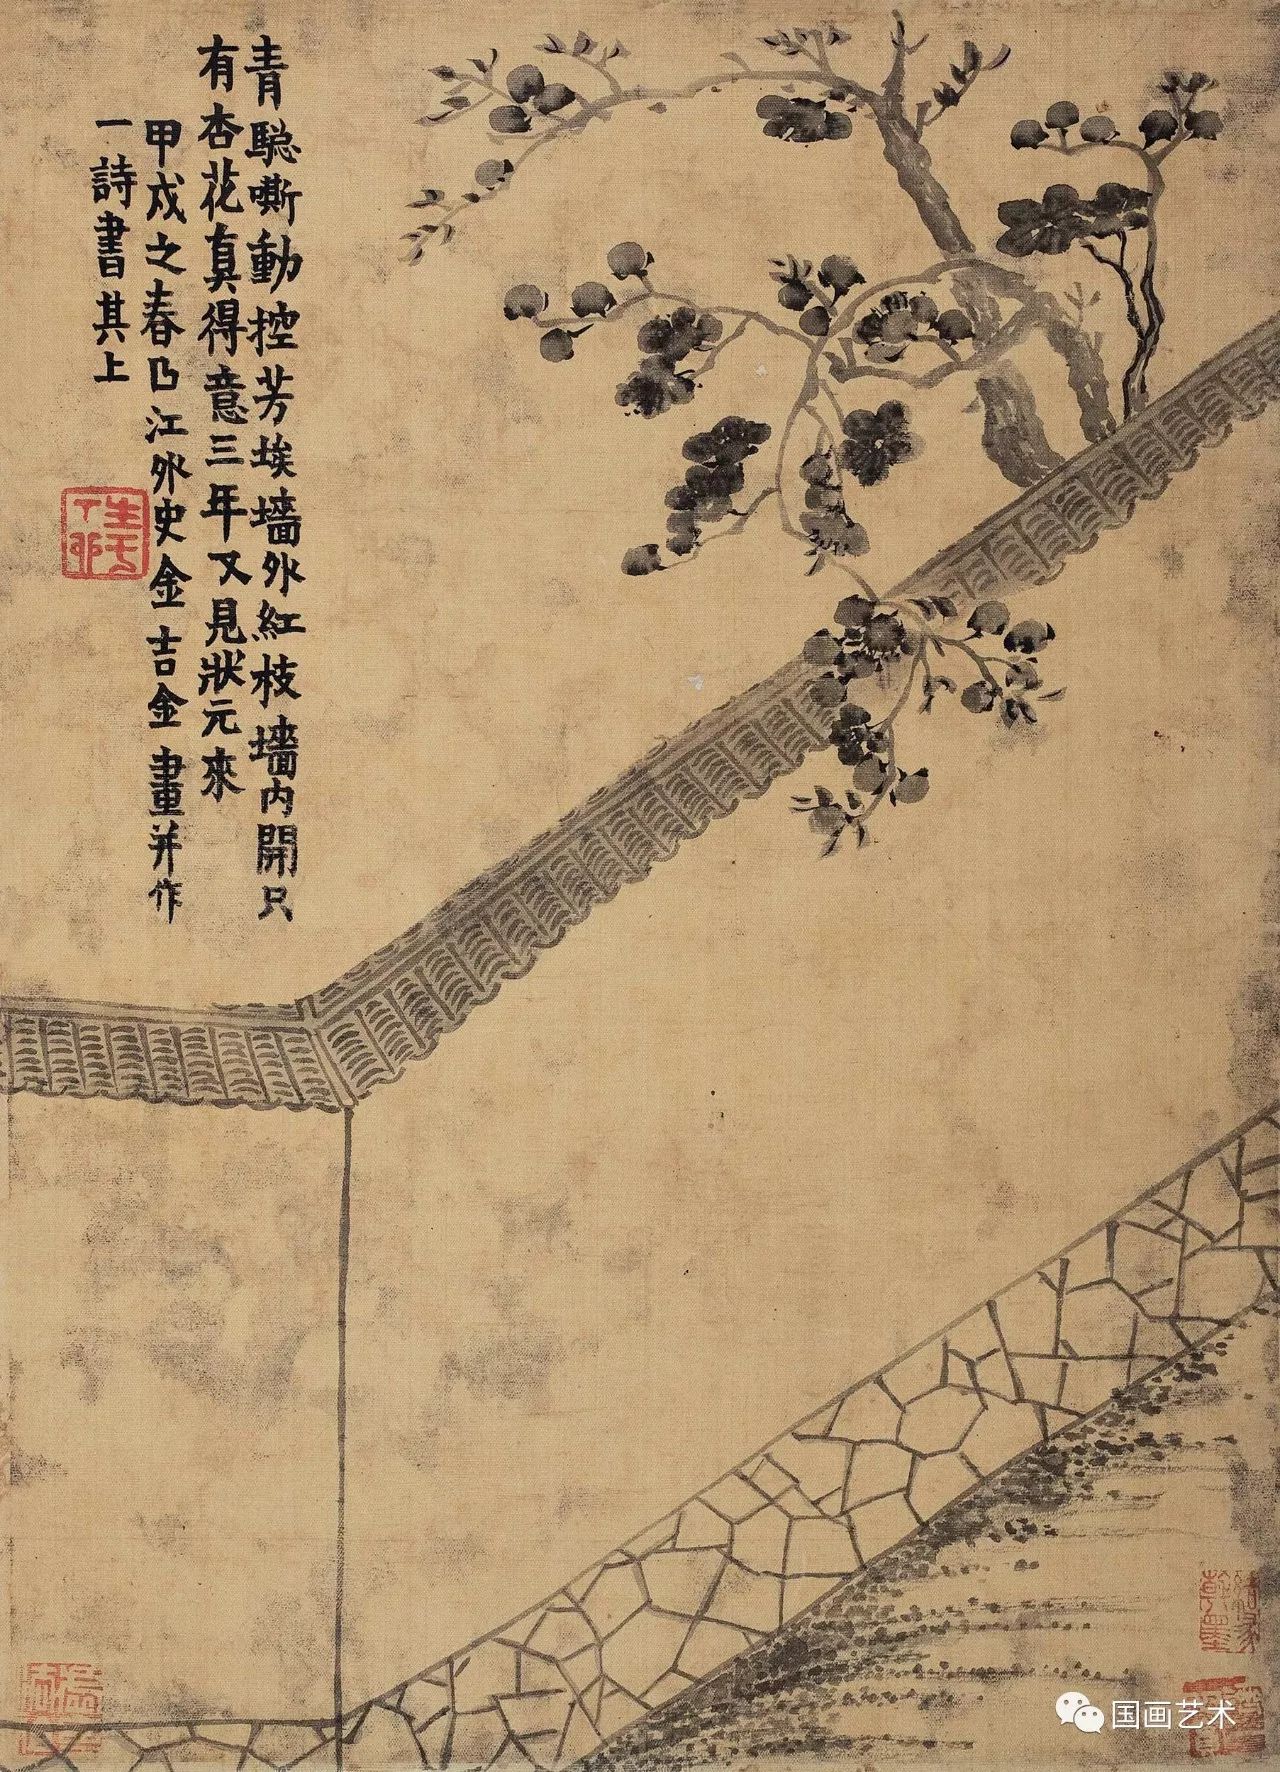 青驄嘶動控芳埃墻外紅枝墻内開只
有杏花真得意三年又見狀元來
甲戌之春乃江外史金吉金畫并作
一詩書其上
国画艺术